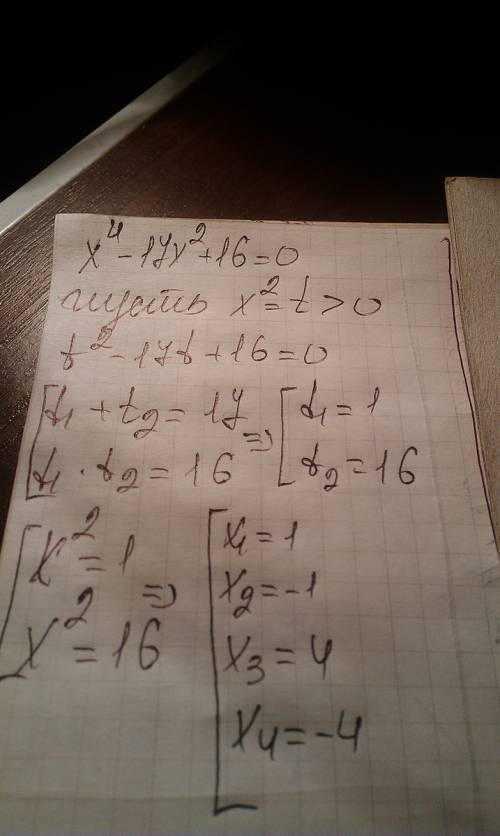 x⁴ - 17x² + 16 = 0
пусть x² = t > 0
t² - 17t + 16 = 0
[t₁ + t₂ = 17 => [t₁ = 1
t₁ · t₂ = 16 t₂ = 16
[x² = 1 => [x₁ = 1
x₂ = -1
x² = 16 x₃ = 4
x₄ = -4